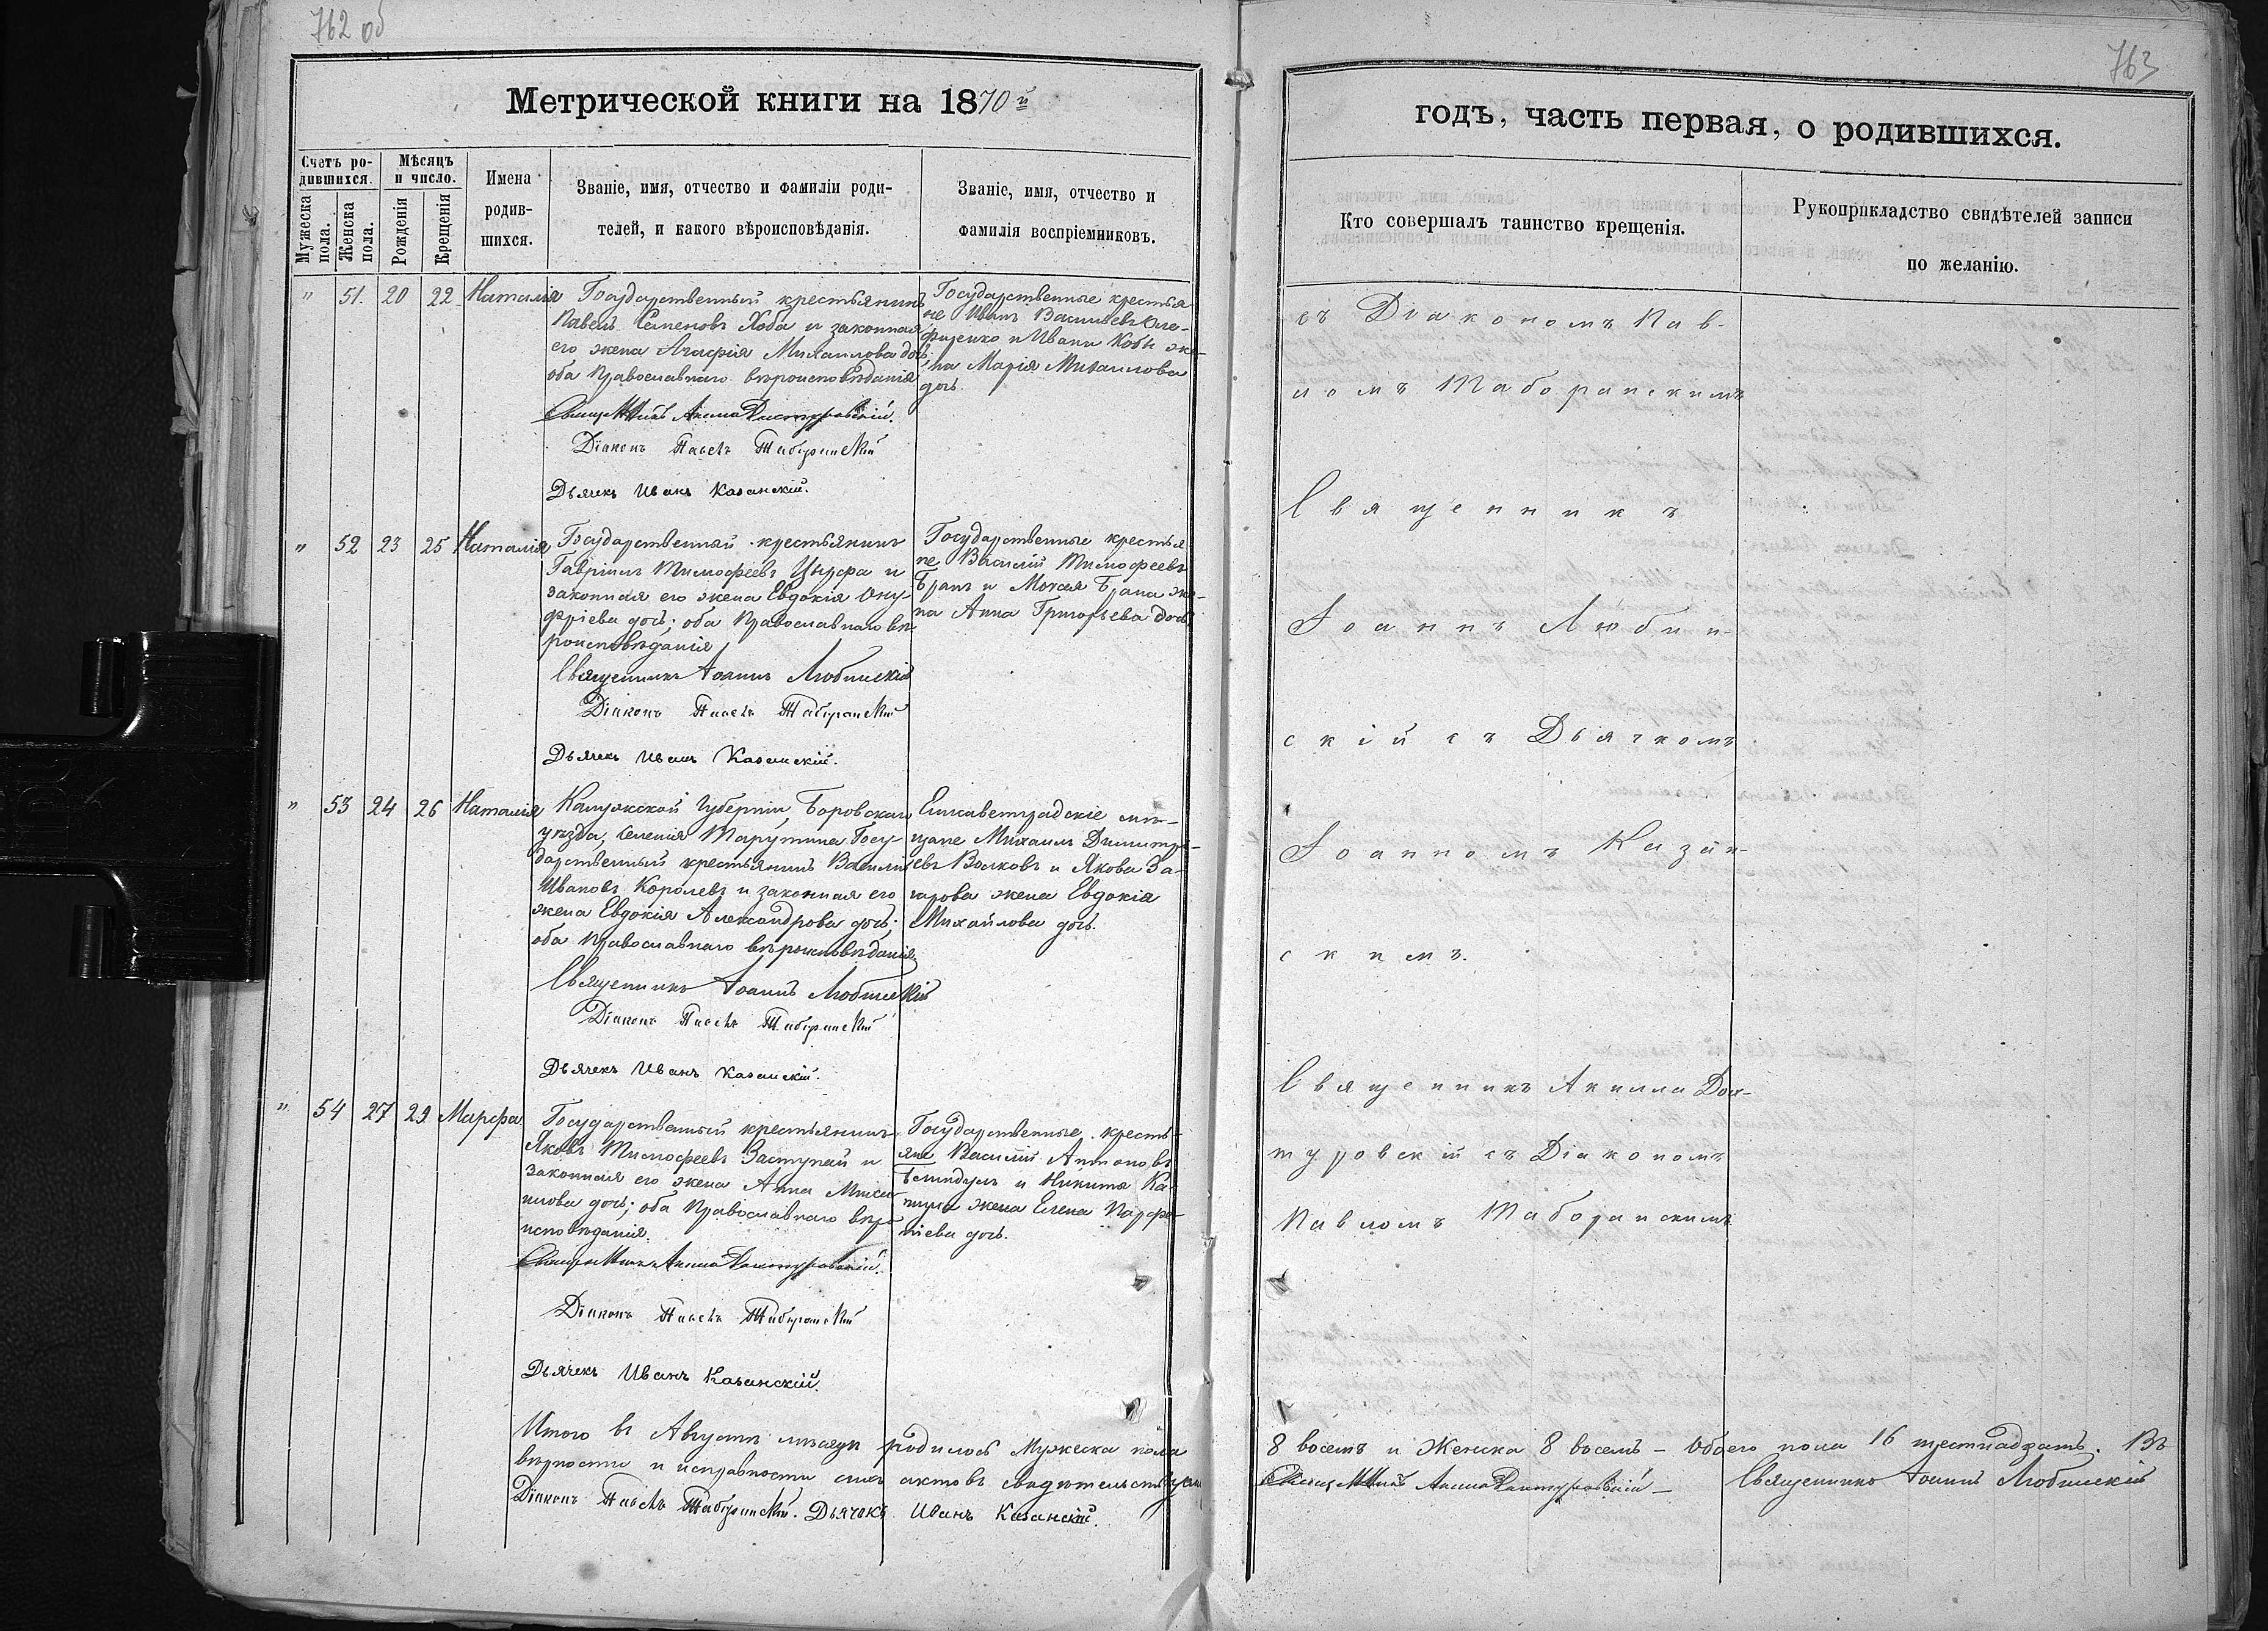 762 об
Метрической книги на 1870й
Счетъ ро-
дившихся.
Мужеска пола.
Женска пола.
Мѣсяцъ
и число.
Рожденія
Крещенія
Имена
родив-
шихся.
Званіе, имя, отчество и фамиліи роди-
телей, и какого вѣроисповѣданія.
Званіе, имя, отчество и
фамилія воспріемниковъ.
" 51. 20 22 Наталія
Государственный крестьянинъ
Павелъ Семеновъ Хоба и законная
его жена Агафія Михаилова дочь,
оба Православнаго вѣроисповѣданія
Діаконъ Павелъ Таборанскій
Дьячекъ Иванъ Казанскій.
Государственные крестья-
не Иванъ Васильевъ
и Ивана Кобы же-
на Марія Михаилова
дочь.
" 52 23 25 Наталія
Государственный крестьянинъ
Гавріилъ Тимофеевъ и
законная его жена Евдокія Ону-
фріева дочь; оба Православнаго вѣ
роисповѣданія
Священникъ Іоаннъ Любинскій
Діаконъ Павелъ Таборанскій
Дьячекъ Иванъ Казанскій.
Государственные крестья
не Василій Тимофеевъ
и Мокея же-
на Анна Григорьева дочь
" 53 24 26 Наталія
Калужской Губерніи, Боровскаго
уѣзда, Селенія Тарутина Госу-
дарственный крестьянинъ Василій
Ивановъ Королевъ и законная его
жена Евдокія Александрова дочь;
оба Православнаго вѣроисповѣданія
Священникъ Іоаннъ Любинскій
Діаконъ Павелъ Таборанскій
Дьячекъ Иванъ Казанскій.
Елисаветградскіе мѣ-
щане Михаилъ Димитрі-
евъ Волковъ и Якова За-
харова жена Евдокія
Михайлова дочь.
" 54 27 29 Марфа
Государственный крестьянинъ
Яковъ Тимофеевъ Заступай и
законная его жена Анна Миха
илова дочь; оба Православнаго вѣро
исповѣданія.
Діаконъ Павелъ Таборанскій
Дьячекъ Иванъ Казанскій.
Государственные кресть-
яне Василій Антоновъ
и Никита
жена Елена Парфе-
ніева дочь.
Итого въ Августѣ мѣсяцѣ родилось Мужеска пола
вѣрности и исправности сихъ актовъ свидѣтельствуемъ
Діаконъ Павелъ Таборанскій. Дьячокъ Иванъ Казанскій.
763
годъ, часть первая, о родившихся.
Кто совершалъ таинство крещенія.
Рукоприкладство свидѣтелей записи
по желанію.
съ Діакономъ Пав-
ломъ Таборанскимъ
Священникъ
Іоаннъ Любин-
скій съ Дьячкомъ
Іоанномъ Казан-
скимъ.
Священникъ Акила Дох-
туровскій съ Діакономъ
Павломъ Таборанскимъ
8 восемь и Женска 8 восемь – обоего пола 16 шестнадцать. Въ
Священникъ Іоаннъ Любинскій